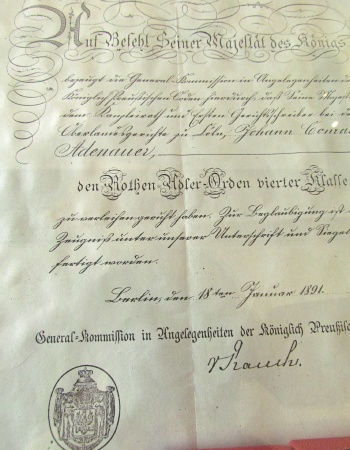 Auf Befehl Seiner Majestät des Königs
bezeugt die General-Kommission in Angelegenheiten de
Königlich Preußischen Orden hierdurch, daß Seine Majest
dem Kanzleirath und Ersten Gerichtsschreiber bei de
Oberlandesgerichte zu Köln, Johann Conra
Adenauer,
den Rothen Adler-Orden vierter Klasse
zu verleihen geruht haben. Zur Beglaubigung ist
Zeugniß unter unserer Unterschrift und Siegel
fertigt worden.
Berlin, den 18ten Januar 1891.
General-Kommission in Angelegenheiten der Königlich Preußisc
v Rauch.